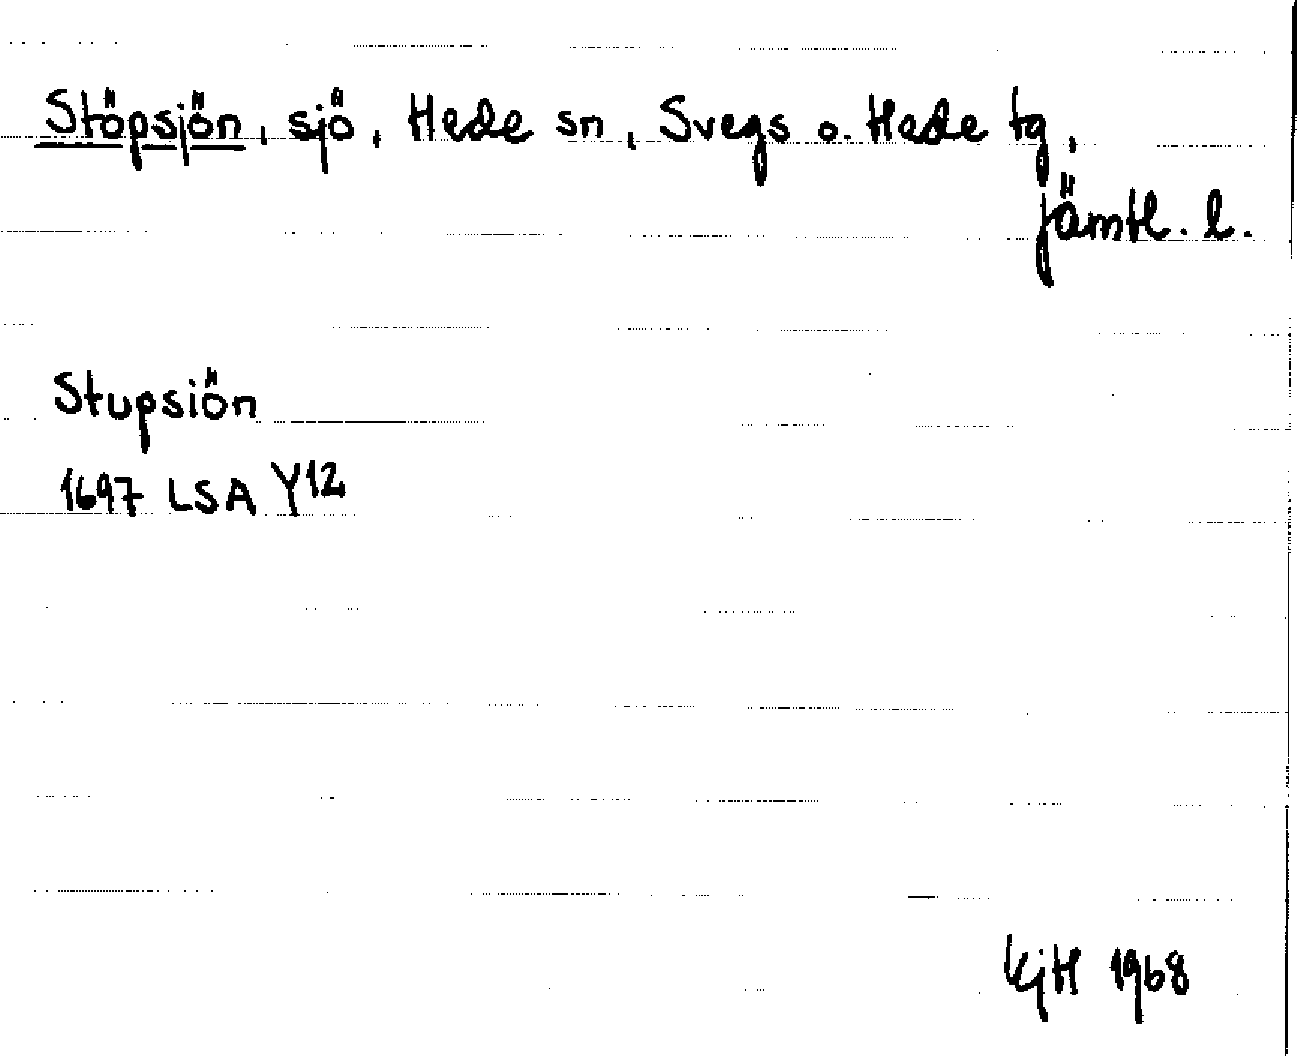 Stöpsjön, sjö, Hede sn, Svegs o. Hede tg,
Jämtl. l.
Stupsiön
1697 LSA Y12
KjH 1968